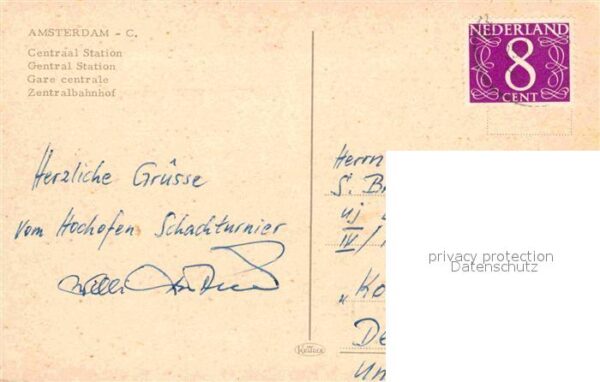 AMSTERDAM - C.
Centraal Station
Gentral Station
Gare centrale
Zentralbahnhof
NEDERLAND
8
CENT
Herzliche Grüsse
vom Hochofen Schachturnier
Willi
Herrn
S. B
uj
IV/
"Ko
De
Un
privacy protection
Datenschutz